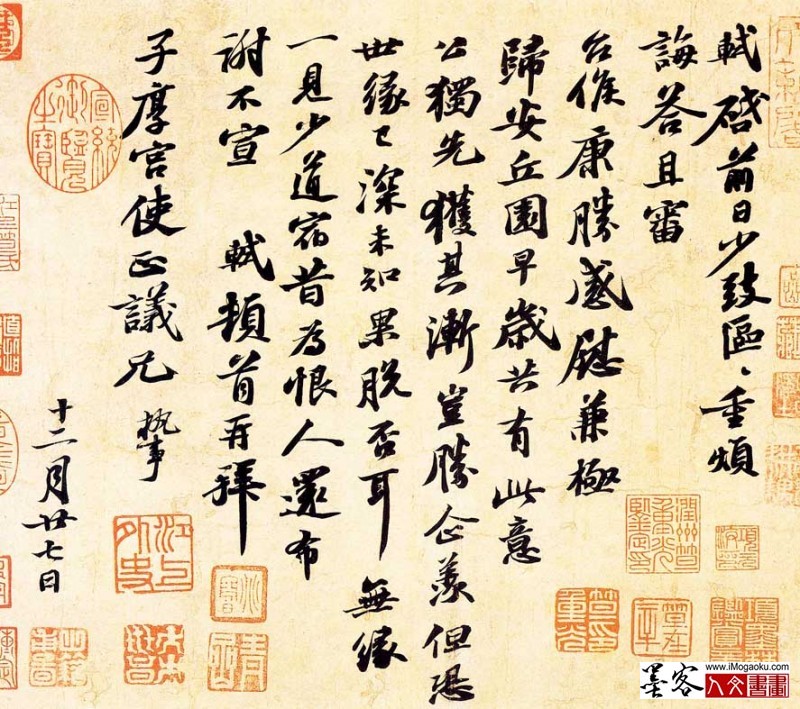 軾啓前日少致區〻重煩
誨荅且審
台候康勝感慰兼極
歸安丘園早歲共有此意
公獨先獲其漸豈勝企羨但恐
世緣已深未知果脫否耳無緣
一見少道宿昔為恨人還布
謝不宣 軾頓首再拜
子厚宮使正議兄執事
十二月廿七日
宣統御覽之寶
墨客
www.iMogaoku.com
人文書畫